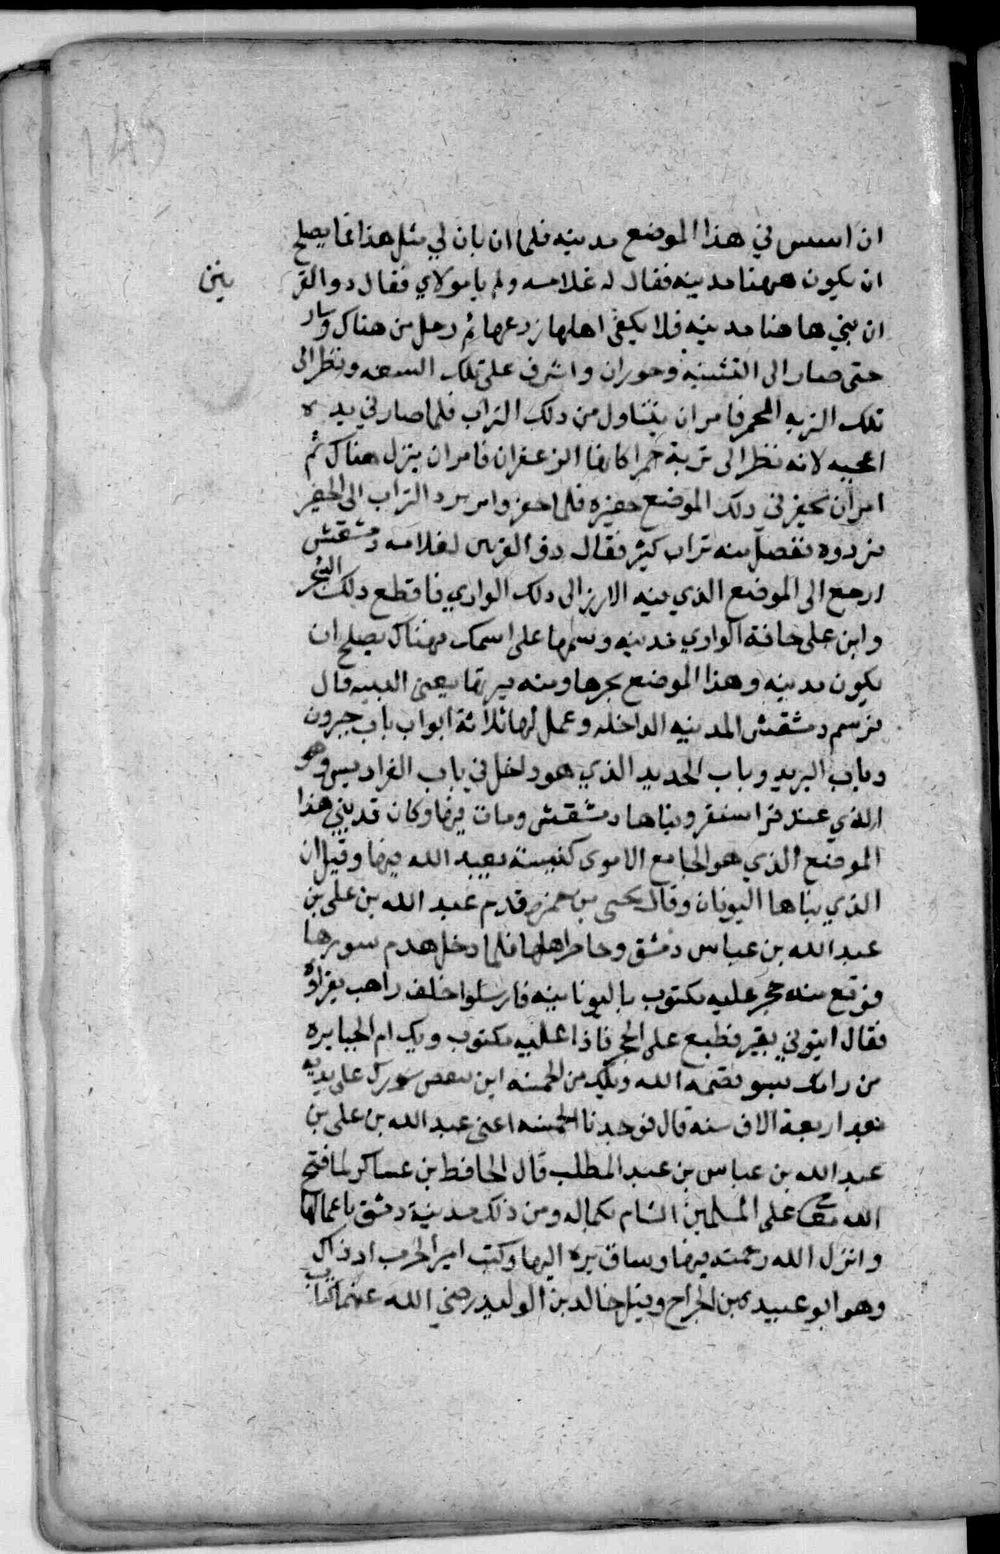 145
ان اسس في هذا الموضع مدينه فلما ان بان لي مثل هذا فما يصلح
ان يكون ههنا مدينه فقال له غلامه ولم يا مولاي فقال ذو القر
نين
ان بني هاهنا مدينه فلا يكفي اهلها زرعها ثم رحل من هناك وسار
حتى صار الى الثنيه وحوران واشرف على تلك السعه ونظر الى
تلك التربه الحمر فامر ان يتناول من دلك التراب فلما صار في يده
اعجبه لانه نظر الى تربة حمرا كانها الزعفران فامر ان ينزل هناك ثم
امر ان يحفر في دلك الموضع حفيره فلما حفر وامر برد التراب الى الحفير
فردوه ففضل منه تراب كثير فقال ذو القرنين لغلامه دمشقش
ارجع الى الموضع الذي فيه الارز الى دلك الوادي فاقطع دلك الشجر
وابن على حافة الوادي مدينه وسمها على اسمك فهناك يصلح ان
يكون مدينه وهذا الموضع بحرها ومنه ميرتها يعني الثنيه قال
فرسم دمشقش المدينه الداخله وعمل لها ثلاثة ابواب باب جيرون
وباب البريد وباب الحديد الذي هو داخل في باب الفراديس وهو
الذي عند قراسنقر وبناها دمشقش ومات فيها وكان قد بني هذا
الموضع الذي هو الجامع الاموى كنيسة يعبد الله فيها وقيل ان
الذي بناها اليونان وقال يحيى بن حمزه قدم عبد الله بن علي بن
عبد الله بن عباس دمشق وحاصر اهلها فلما دخل هدم سورها
فوقع منه حجر عليه مكتوب باليونانيه فارسلوا خلف راهب يقراه
فقال ايتوني بقير فطبع على الحجر فاذا عليه مكتوب ويك ام الجبابره
من رامك بسو قصمه الله ويلك من الخمسه اعين نقض سورك على يديه
بعد اربعة الاف سنه قال فوجدنا الخمسه اعني عبد الله بن علي بن
عبد الله بن عباس بن عبد المطلب قال الحافظ بن عساكر لما فتح
الله تعالى على المسلمين الشام بكماله ومن ذلك مدينة دمشق باعمالها
وانزل الله رحمته فيها وساق بره اليها وكتب امير الحرب اذ ذاك
وهو ابو عبيده بن الجراح وقيل خالد بن الوليد رضي الله عنهما كتاب